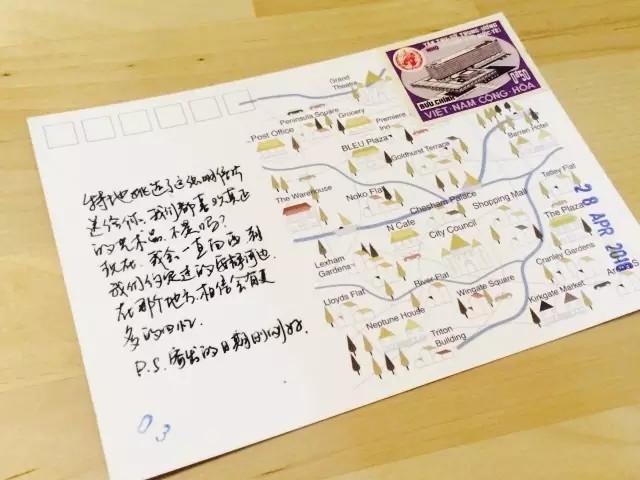 特地挑选了这张明信片
送给你，我们都喜欢真正
的艺术品，不是吗？
现在，我会一直向西，到
我们约定过的
在那个地方，相信会有更
多的回忆．
P.S. 寄出的日期
03
BƯU CHÍNH
0đ50
VIỆT·NAM CỘNG·HÒA
28 APR
Grand
Theatre
Peninsula Square
Grocery
Premiere
Inn
Post Office
BLEU Plaza
Goldhurst Terrace
Barren Hotel
The Warehouse
Noko Flat
Chesham Palace
Shopping Mall
Tatley Flat
N Cafe
City Council
The Plaza
Lexham
Gardens
Cranley Gardens
Lloyds Flat
River Flat
Wingate Square
Kirkgate Market
Neptune House
Triton
Building